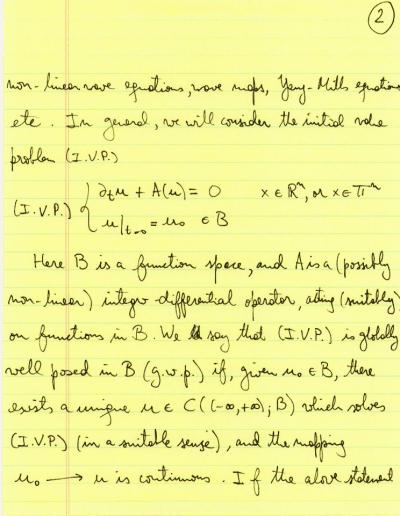 2
non-linear wave equations, wave maps, Yang-Mills equations
etc. In general, we will consider the initial value
problem (I.V.P.)
(I.V.P.) { ∂tu + A(u) = 0 x ∈ ℝⁿ, or x ∈ 𝕋ⁿ
u|t=0 = u0 ∈ B
Here B is a function space, and A is a (possibly
non-linear) integro-differential operator, acting (suitably)
on functions in B. We say that (I.V.P.) is globally
well posed in B (g.w.p.) if, given u0 ∈ B, there
exists a unique u ∈ C((-∞,+∞); B) which solves
(I.V.P.) (in a suitable sense), and the mapping
u0 → u is continuous. If the above statement